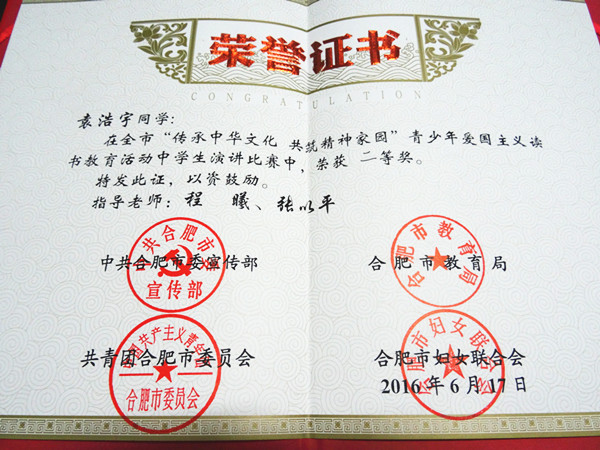 荣誉证书
CONGRATULATION
袁浩宇同学：
在全市“传承中华文化 共筑精神家园”青少年爱国主义读
书教育活动中学生演讲比赛中，荣获 二等奖。
特发此证，以资鼓励。
指导老师：程 曦、张以平
中共合肥市委宣传部
合肥市教育局
中共合肥市委
宣传部
合肥市教育局
共青团合肥市委员会
合肥市妇女联合会
2016年6月17日
中国共产主义青年团
合肥市委员会
合肥市妇女联合会